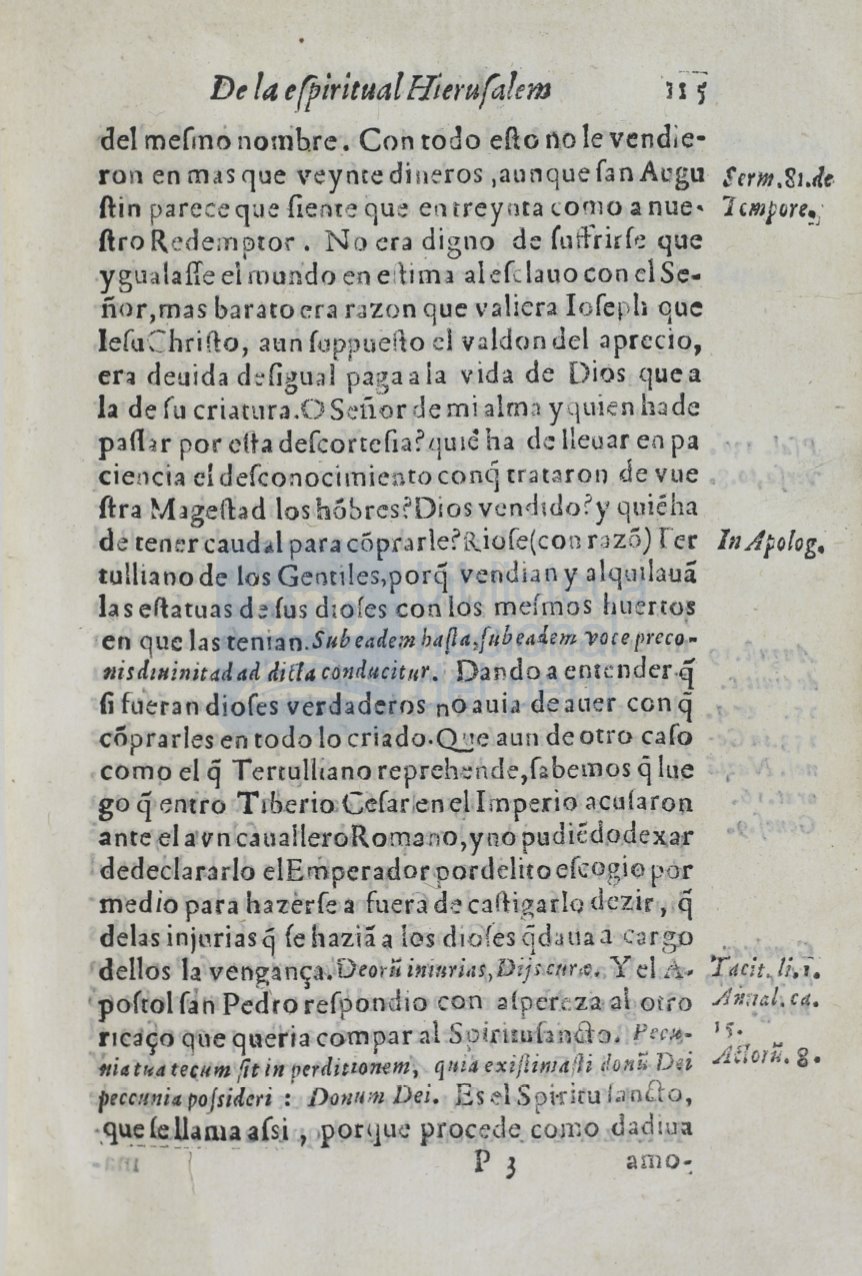 De la eſpiritual Hieruſalem 115
del meſmo nombre. Con todo eſto no le vendie-
ron en mas que veynte dineros, aunque ſan Augu
Serm. 81. de
ſtin parece que ſiente que en treynta como a nue-
Tempore.
ſtro Redemptor. No era digno de ſuffrirſe que
ygualaſſe el mundo en eſtima al eſclauo con el Se-
ñor, mas barato era razon que valiera Ioſeph que
Ieſu Chriſto, aun ſuppueſto el valdon del aprecio,
era deuida deſigual paga a la vida de Dios que a
la de ſu criatura. O Señor de mi alma y quien ha de
paſſar por eſta deſcorteſia? quiē ha de lleuar en pa
ciencia el deſconocimiento con q̄ trataron de vue
ſtra Mageſtad los hōbres? Dios vendido? y quiē ha
de tener caudal para cōprarle? Rioſe (con razō) Ter
In Apolog.
tulliano de los Gentiles, porq̄ vendian y alquilauā
las eſtatuas de ſus dioſes con los meſmos huertos
en que las tenian. Sub eadem haſta, ſub eadem voce preco-
nis diuinitad ad dicta conducitur. Dando a entender q̄
ſi fueran dioſes verdaderos no auia de auer con q̄
cōprarles en todo lo criado. Que aun de otro caſo
como el q̄ Tertulliano reprehende, ſabemos q̄ lue
go q̄ entro Tiberio Ceſar en el Imperio acuſaron
ante el a vn cauallero Romano, y no pudiēdo dexar
de declararlo el Emperador por delito eſcogio por
medio para hazerſe a fuera de caſtigarlo dezir, q̄
de las injurias q̄ ſe haziā a los dioſes q̄daua a cargo
dellos la vengança. Deorū iniurias, Dijs curæ. Y el A-
Tacit. li. 1.
poſtol ſan Pedro reſpondio con aſpereza al otro
Annal. ca.
ricaço que queria compar al Spirituſancto. Pecu-
15.
nia tua tecum ſit in perditionem, quia exiſtimaſti donū Dei
Actorū. 8.
peccunia poſsideri : Donum Dei. Es el Spiritu ſancto,
que ſe llama aſsi, porque procede como dadiua
P 3 amo-